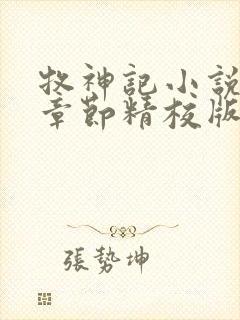 牧神記小說
章節精校版
張勢坤